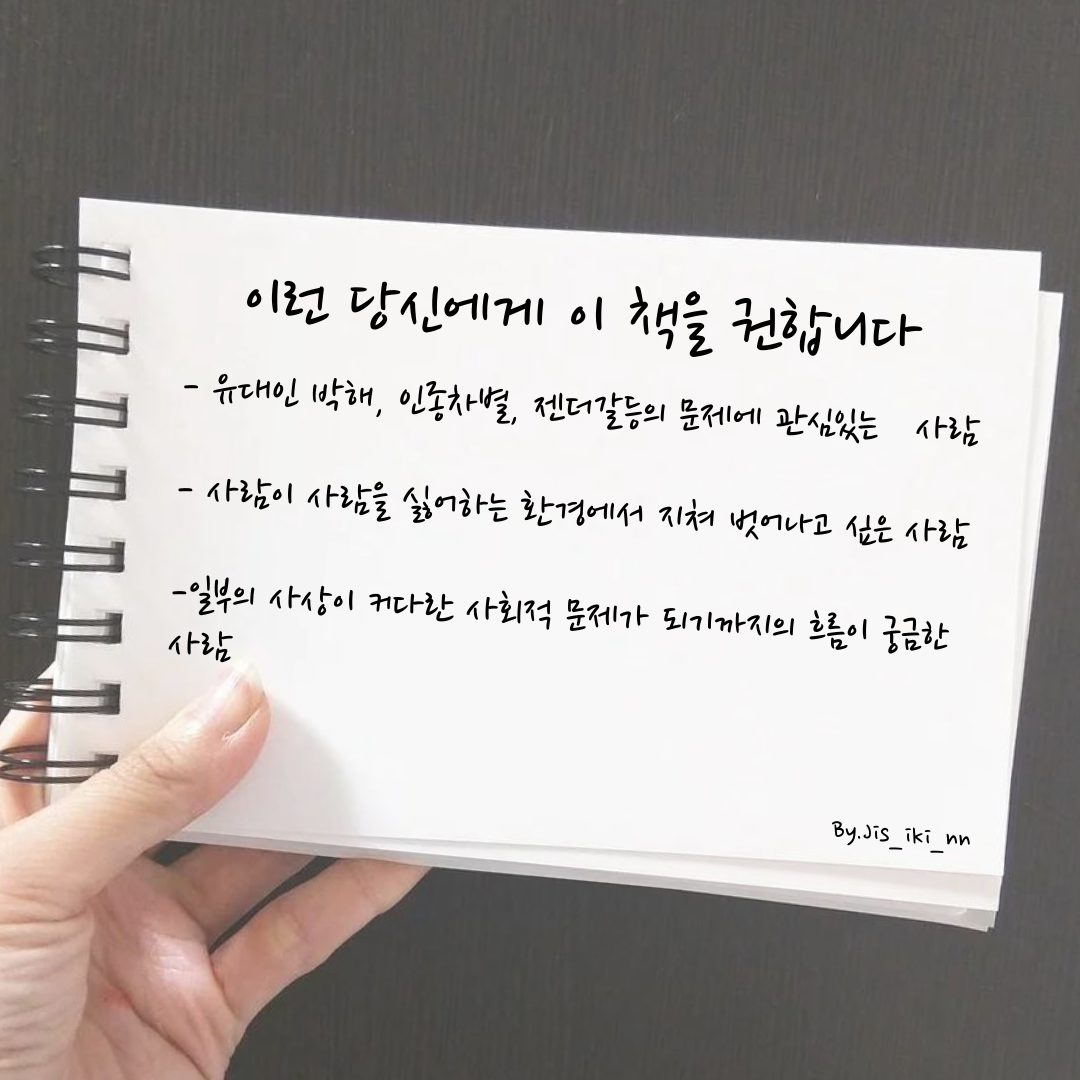 이런 당신에게 이 책을 권합니다
- 유대인 박해, 인종차별, 젠더갈등의 문제에 관심있는 사람
- 사람이 사람을 싫어하는 환경에서 지쳐 벗어나고 싶은 사람
-일부의 사상이 커다란 사회적 문제가 되기까지의 흐름이 궁금한
사람
By.Jis_iki_nn